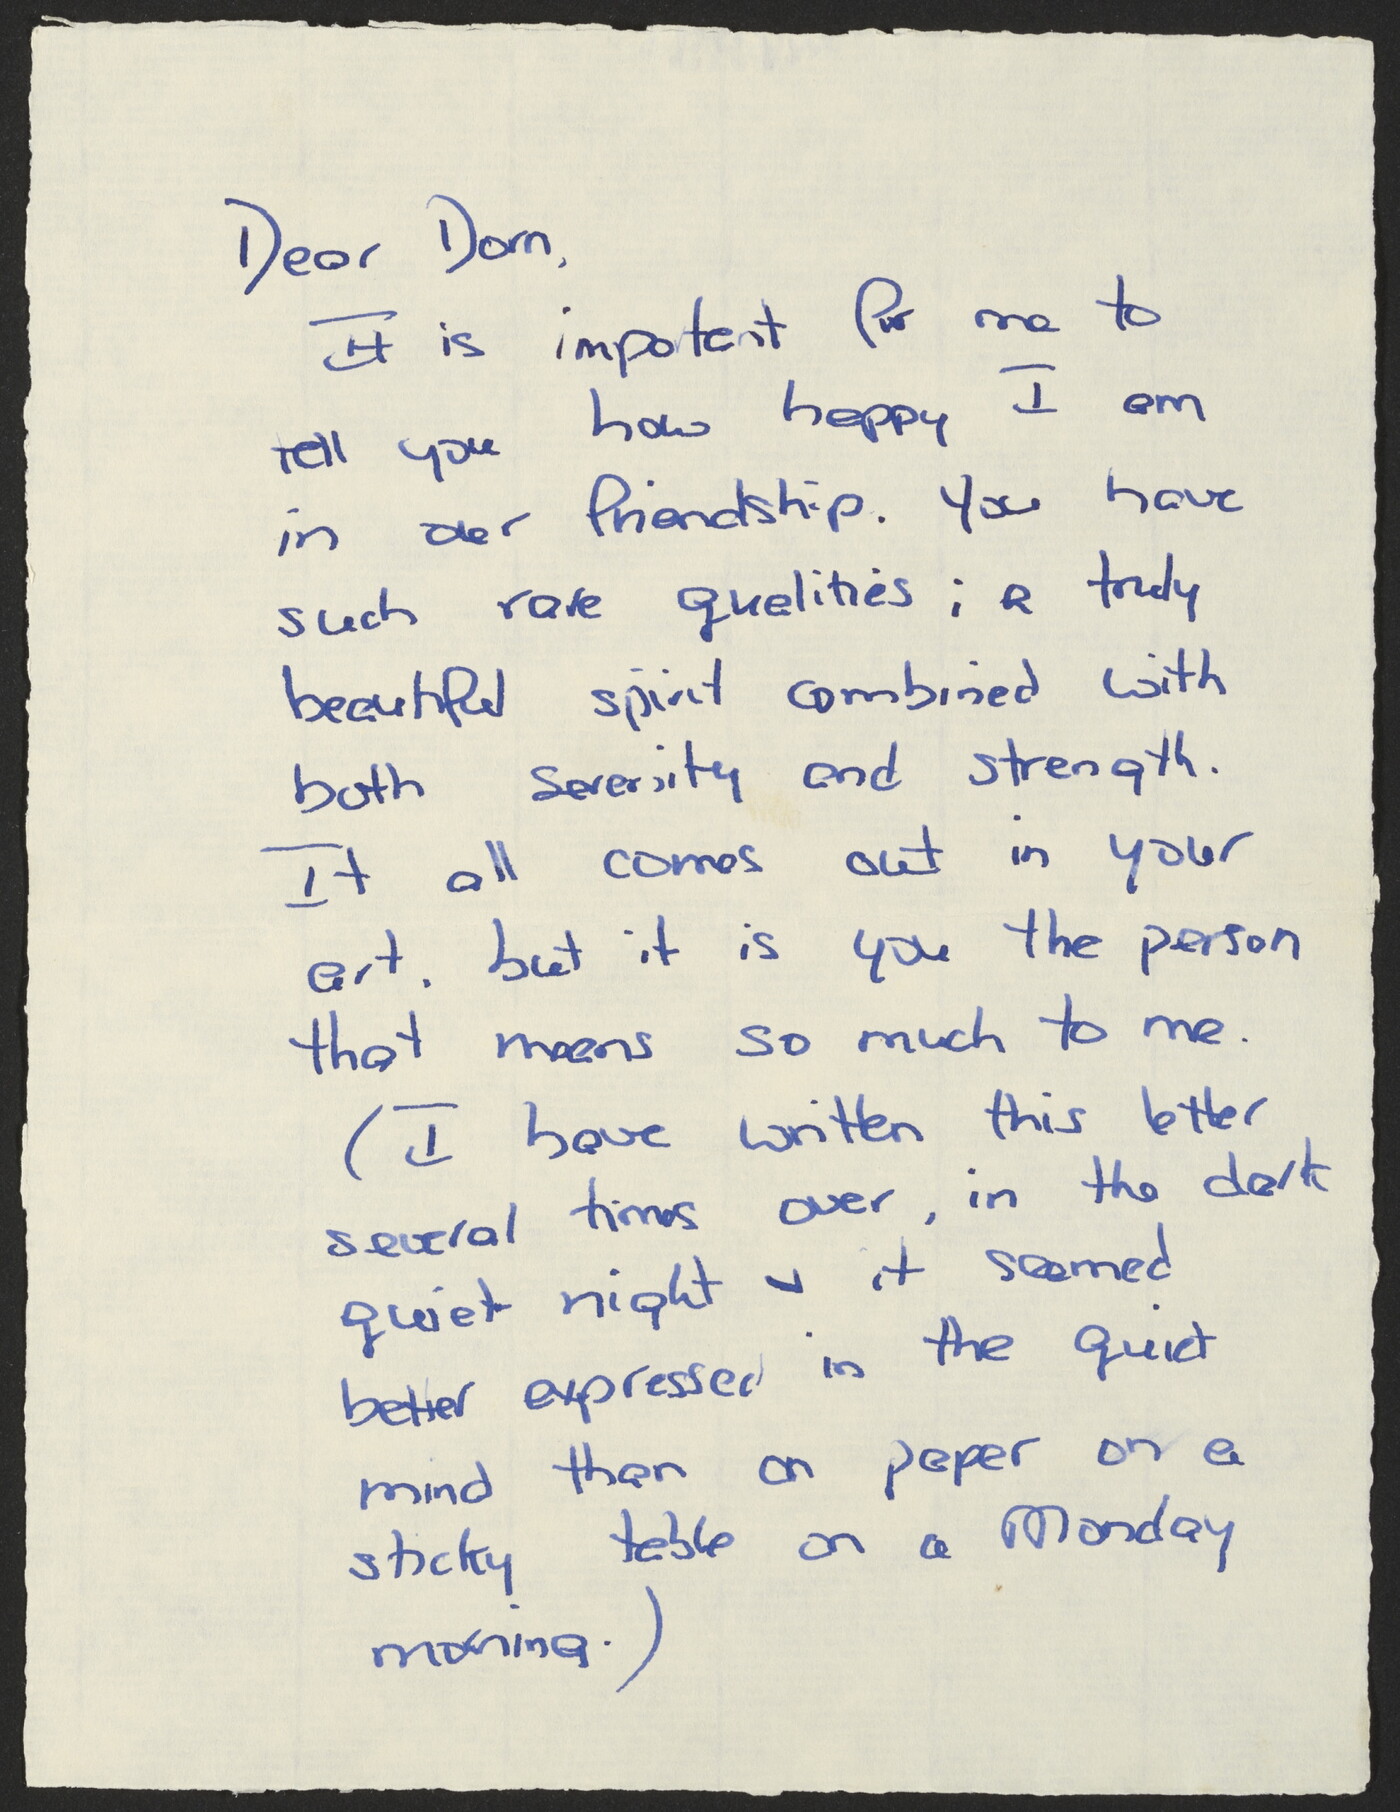 Dear Dorn,
It is impotent for me to
tell you how happy I am
in our friendship. You have
such rare qualities; a truly
beautiful spirit combined with
both serenity and strength.
It all comes out in your
art. but it is you the person
that means so much to me.
(I have written this letter
several times over, in the dark
quiet night & it seemed
better expressed in the quiet
mind than on paper on a
sticky table on a Monday
morning.)